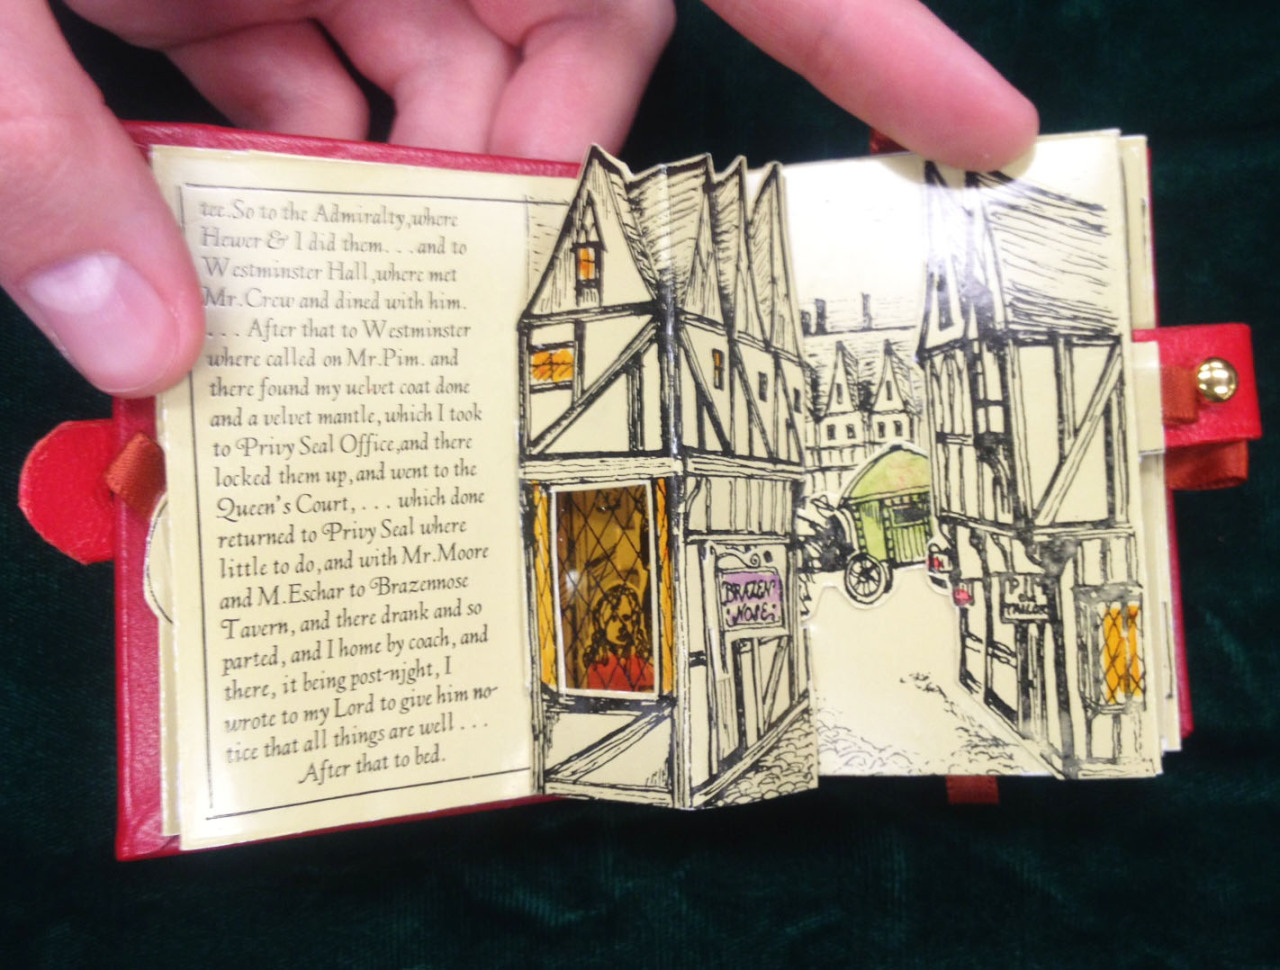 tee. So to the Admiralty, where
Hewer & I did them. . . and to
Westminster Hall, where met
Mr. Crew and dined with him.
. . . After that to Westminster
where called on Mr. Pim. and
there found my uelvet coat done
and a velvet mantle, which I took
to Privy Seal Office, and there
locked them up, and went to the
Queen's Court, . . . which done
returned to Privy Seal where
little to do, and with Mr. Moore
and M. Eschar to Brazennose
Tavern, and there drank and so
parted, and I home by coach, and
there, it being post-night, I
wrote to my Lord to give him no-
tice that all things are well . . .
After that to bed.
BRAZEN
NOSE
TAILOR